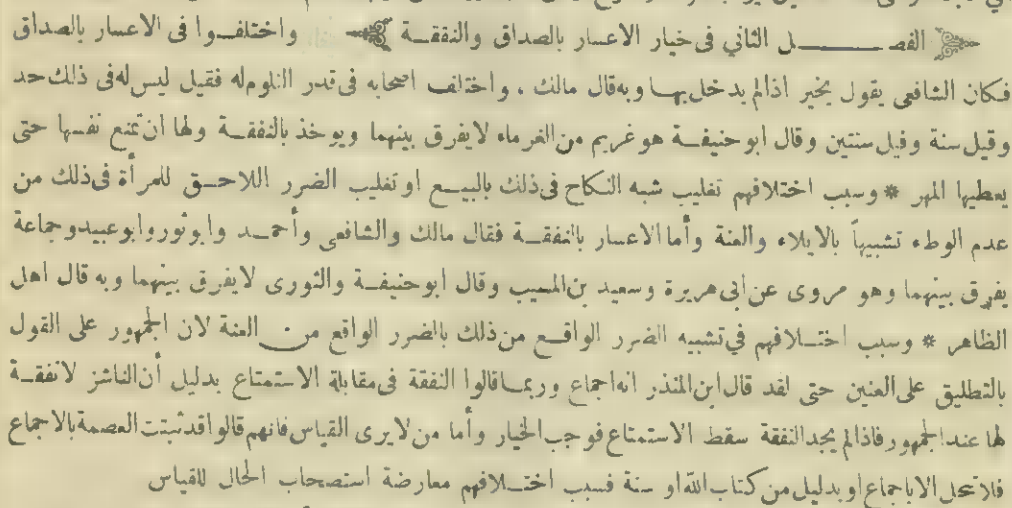 الفصل الثاني في خيار الاعسار بالصداق والنفقة واختلفوا في الاعسار بالصداق
فكان الشافعي يقول يخير اذا لم يدخل بها وبه قال مالك ، واختلف اصحابه في قدر التلوم له فقيل ليس له في ذلك حد
وقيل سنة وقيل سنتين وقال ابو حنيفة هو غريم من الغرماء لا يفرق بينهما ويوخذ بالنفقة ولها ان تمنع نفسها حتى
يعطيها المهر * وسبب اختلافهم تغليب شبه النكاح في ذلك بالبيع او تغليب الضرر اللاحق للمرأة في ذلك من
عدم الوطء تشبيهاً بالايلاء والعنة وأما الاعسار بالنفقة فقال مالك والشافعي وأحمد وابو ثور وابو عبيد وجماعة
يفرق بينهما وهو مروى عن ابي هريرة وسعيد بن المسيب وقال ابو حنيفة والثوري لا يفرق بينهما وبه قال اهل
الظاهر * وسبب اختلافهم في تشبيه الضرر الواقع من ذلك بالضرر الواقع من العنة لان الجمهور على القول
بالتطليق على العنين حتى لقد قال ابن المنذر انه اجماع وربما قالوا النفقة في مقابلة الاستمتاع بدليل أن الناشز لا نفقة
لها عند الجمهور فاذا لم يجد النفقة سقط الاستمتاع فوجب الخيار وأما من لا يرى القياس فانهم قالوا قد ثبتت العصمة بالاجماع
فلا تحل الا باجماع او بدليل من كتاب الله او سنة فسبب اختلافهم معارضة استصحاب الحال للقياس